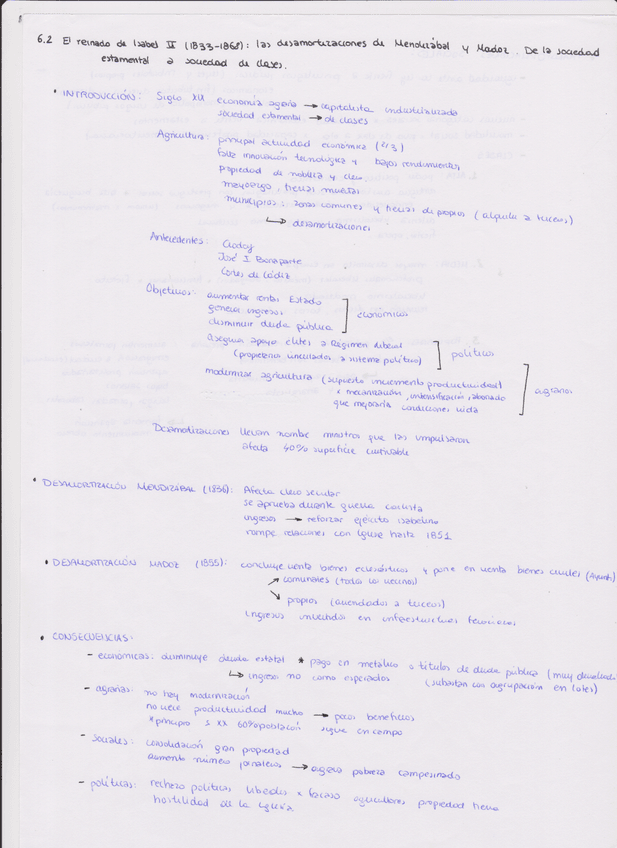 6.2 El reinado de Isabel II (1833-1868): las desamortizaciones de Mendizábal y Madoz. De la sociedad
estamental a sociedad de clases.
• INTRODUCCIÓN: Siglo XIX economía agraria → capitalista industrializada
sociedad estamental → de clases
Agricultura: principal actividad económica (2/3)
falta innovación tecnológica y bajos rendimientos
propiedad de nobleza y clero
mayorazgo, tierras muertas
municipios: zonas comunes y tierras de propios (alquila a terceros)
↳ desamortizaciones
Antecedentes: Godoy
José I Bonaparte
Cortes de Cádiz
Objetivos: aumentar rentas Estado
generar ingresos
disminuir deuda pública
económicos
asegurar apoyo élites a Régimen liberal
(propietarios vinculados a sistema político)
políticos
modernizar agricultura (supuesto incremento productividad)
x mecanización, intensificación, abonado
que mejoraría condiciones vida
agrarios
Desamortizaciones llevan nombre ministros que las impulsaron
afecta 40% superficie cultivable
• DESAMORTIZACIÓN MENDIZÁBAL (1836): Afecta clero secular
se aprueba durante guerra carlista
ingresos → reforzar ejército isabelino
rompe relaciones con Iglesia hasta 1851
• DESAMORTIZACIÓN MADOZ (1855): concluye venta bienes eclesiásticos y pone en venta bienes civiles
↗ comunales (todos los vecinos)
↘ propios (arrendados a terceros)
ingresos invertidos en infraestructuras ferroviarias
• CONSECUENCIAS:
- económicas: disminuye deuda estatal * pago en metálico o títulos de deuda pública (muy
↳ ingresos no como esperados (subastan con agrupación en lotes)
- agrarias: no hay modernización
no crece productividad mucho → pocos beneficios
* principio s XX 60% población sigue en campo
- sociales: consolidación gran propiedad
aumento número jornaleros → agrava pobreza campesinado
- políticas: rechazo políticas liberales x fracaso agricultores propiedad tierra
hostilidad de la Iglesia